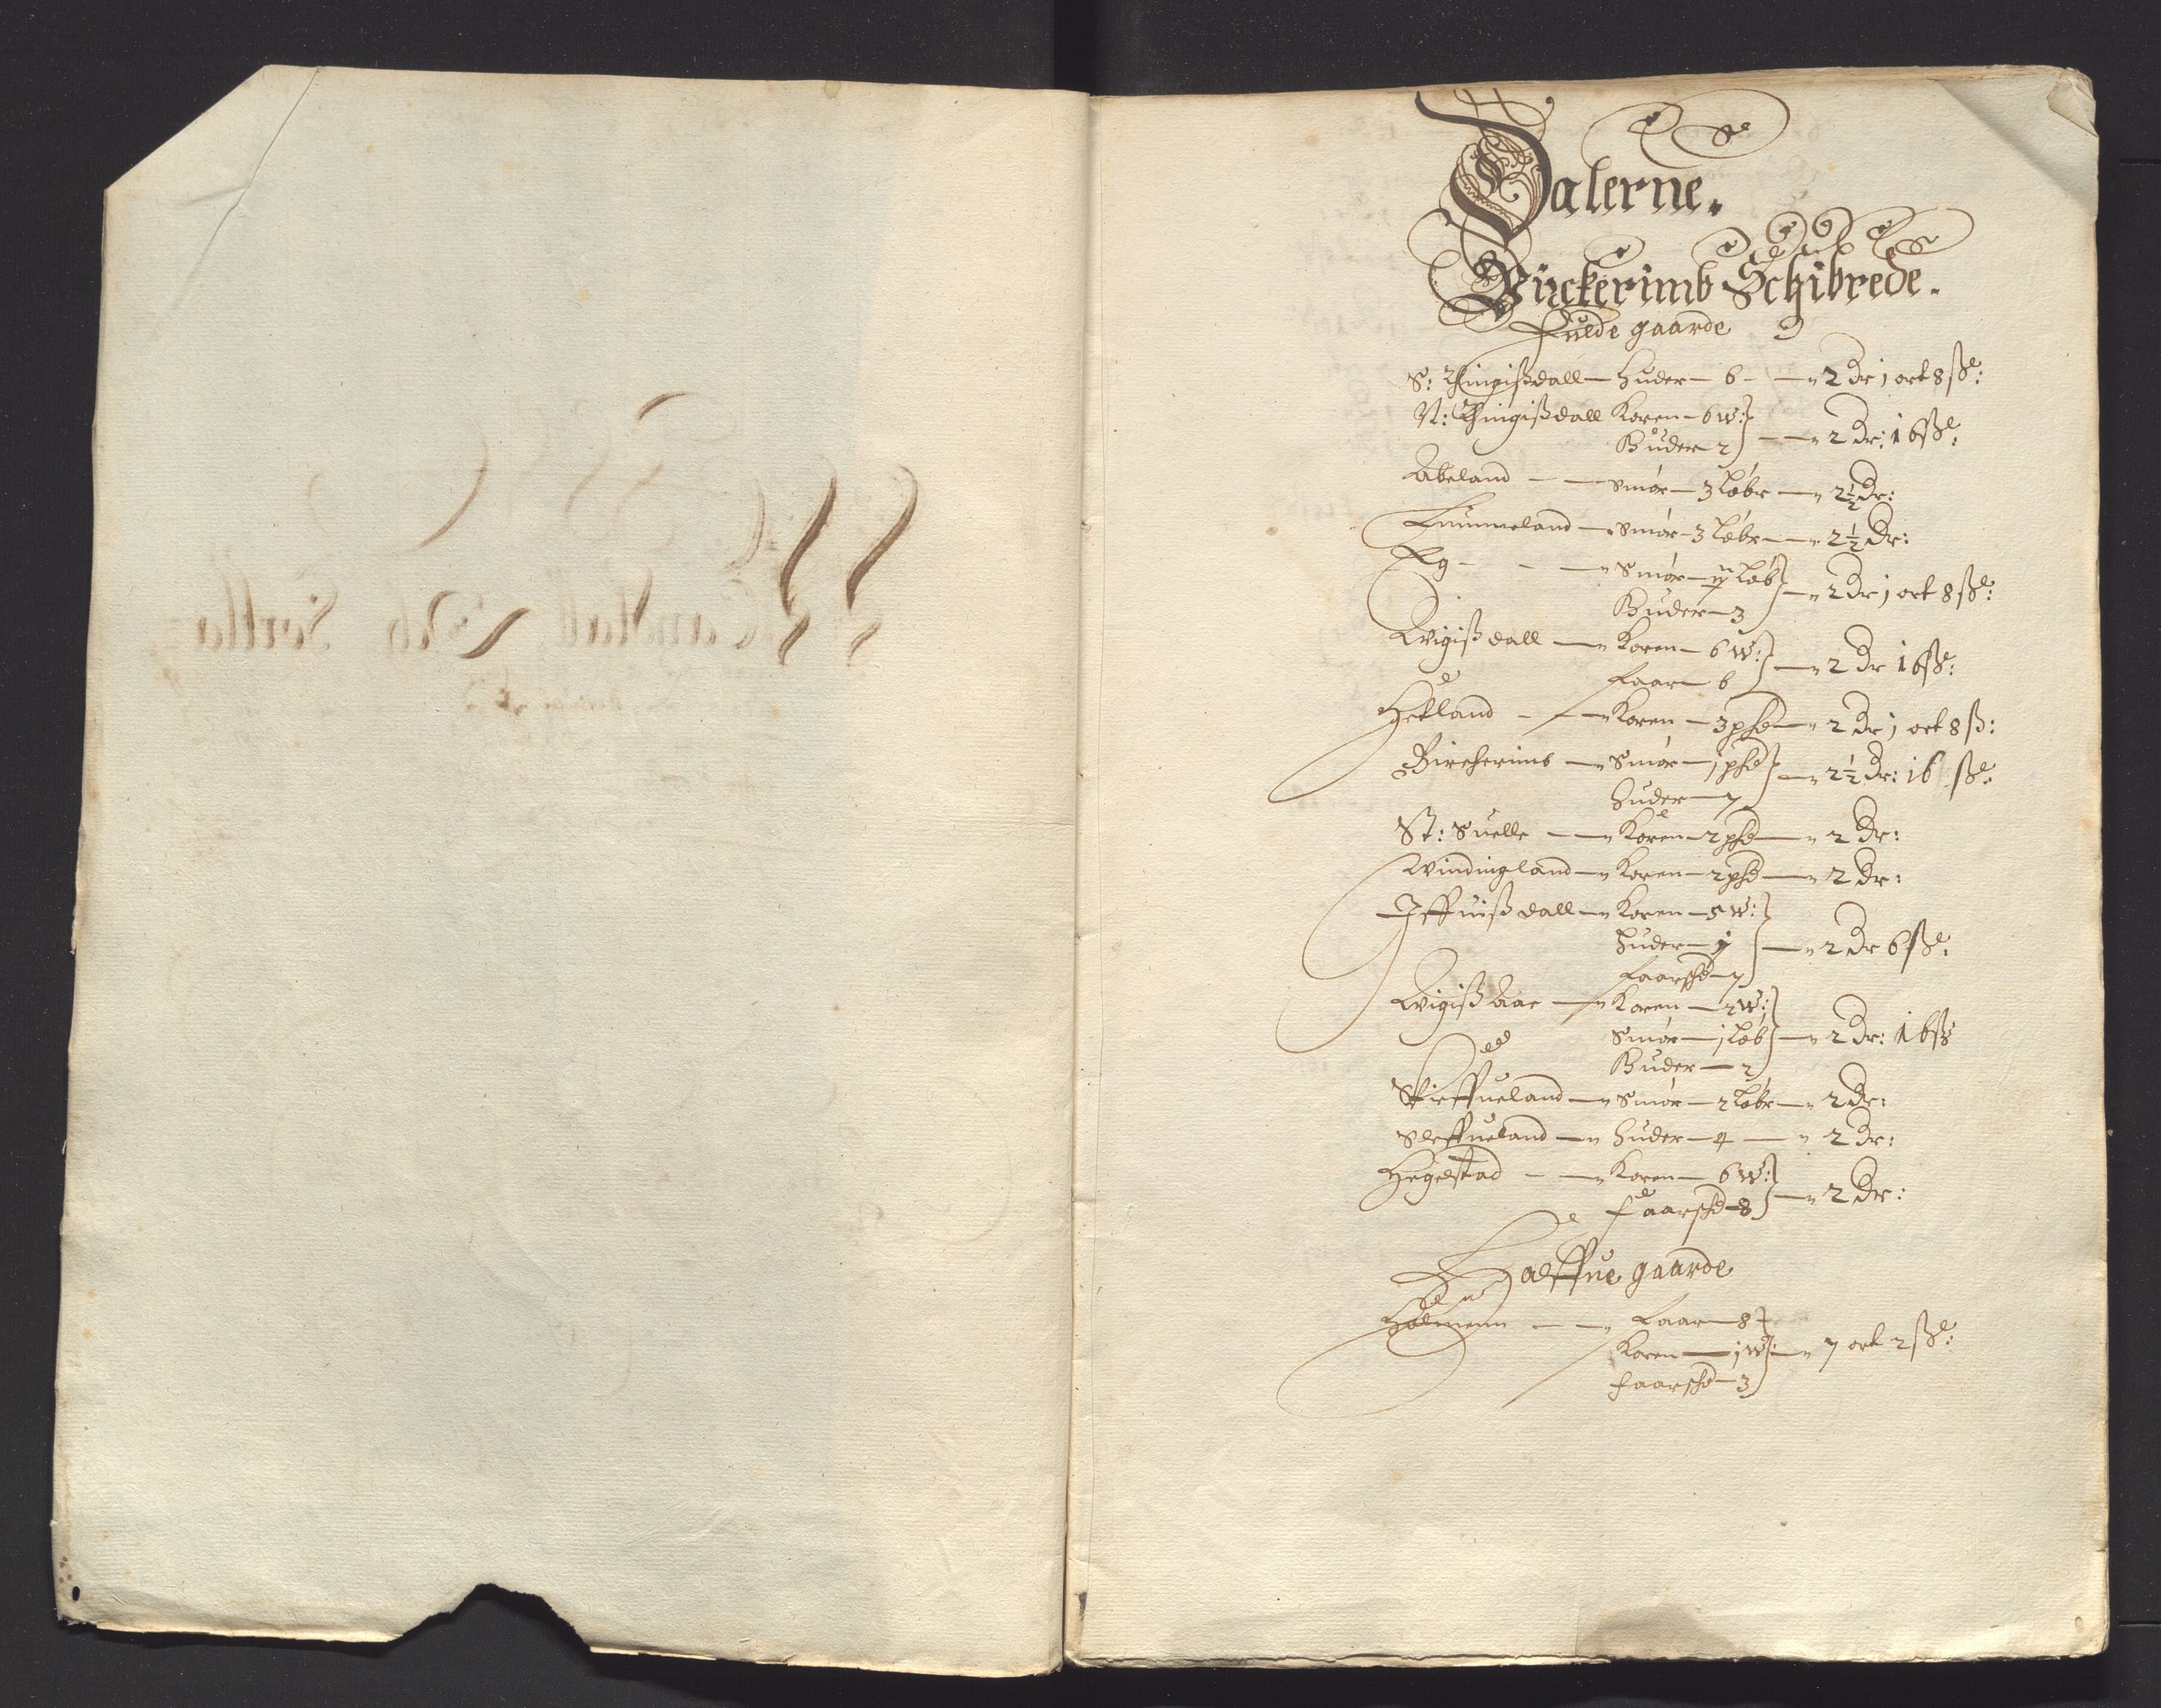 Dalerne.
Birckerimb Schibrede.
Fulde gaarde
S: Thingißdall – huder – 6 – 2 Dr 1 ort 8 ß:
N: Thingißdall Koren – 6 W:
Huder 2 – 2 Dr: 16 ß:
Abeland – smør – 3 løbr – 2½ Dr:
Lummeland – smør – 3 løbr – 2½ Dr:
Eg – Smør – løb
Huder – 3 – 2 Dr 1 ort 8 ß:
Wigiß dall – Koren – 6 W:
faar – 6 – 2 Dr 16 ß:
Hetland – Koren – 3 phd – 2 Dr 1 ort 8 ß:
Bircherimb – Smør – 1 phd
huder – 7 – 2½ Dr: 16 ß:
St: Suelle – Koren – 2 phd – 2 Dr:
Windingland – Koren – 2 phd – 2 Dr:
Iffuiß dall – Koren – 5 W:
huder – 1 – 2 Dr 6 ß:
faarshd – 7
Wigiß Aae – Koren – 2 W:
Smør – 1 løb – 2 Dr: 16 ß
Huder – 2
Skieffueland – Smør – 2 løbr – 2 Dr:
Sleffueland – huder – 4 – 2 Dr:
Hegelstad – Koren – 6 W:
faarshd – 8 – 2 Dr:
Halffue gaarde
Holmenn – faar – 8
Koren – 1 W: – 7 ort 2 ß:
faarshd – 3